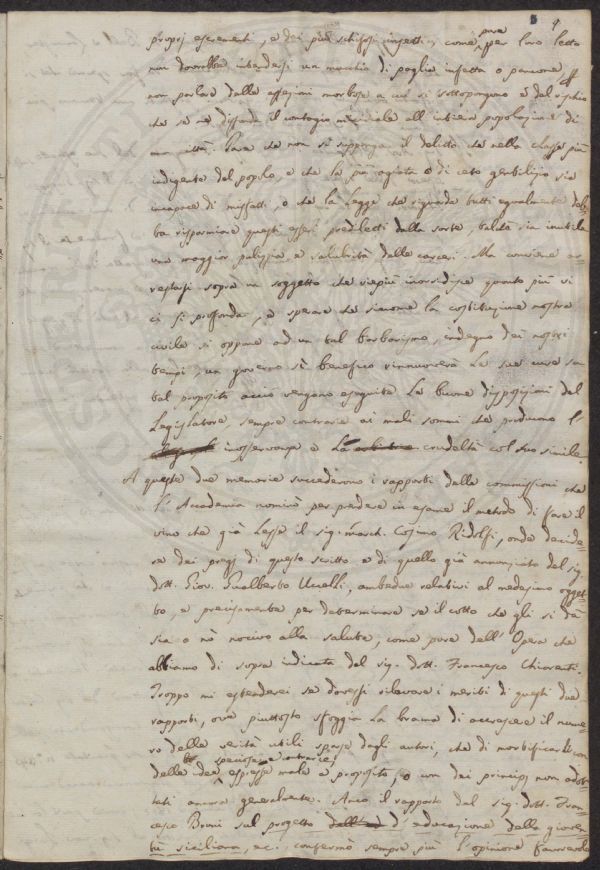 5 9
proprj escrementi, e dei più schifosi insetti, come pure per loro letto
non dovrebbe intendersi un mucchio di paglia infetta o pancone,
non parlare delle affezioni morbose a cui si sottopongono e del rischio
che se ne diffonda il contagio micidiale all'intiera popolazione di
una città. Pare che non si supponga il delitto che nella classe più
indigente del popolo, e che la più agiata o di ceto gentilizio sia
incapace di misfatti, o che la Legge che riguarda tutti egualmente deb-
ba risparmiare questi esseri prediletti dalla sorte, talchè sia inutile
una maggior pulizia e salubrità delle carceri. Ma conviene ar-
restarsi sopra un soggetto che viepiù inorridisce quanto più vi
ci si profonda, e sperare che siccome la costituzione nostra
civile si oppone ad un tal barbarismo, indegno dei nostri
tempi, un governo sì benefico rinnuoverà le sue cure su
tal proposito acciò vengano eseguite le buone disposizioni del
Legislatore, sempre contrarie ai mali sommi che producono l'
inosservanza e la crudeltà col suo simile.
A queste due memorie succederono i rapporti delle commissioni che
l'Accademia nominò per prendere in esame il metodo di fare il
vino che già lesse il sig. March. Cosimo Ridolfi, onde decide-
re dei pregi di questo scritto e di quello già annunziato del sig.
dott. Giov. Gualberto Uccelli, ambedue relativi al medesimo ogget-
to, e precisamente per determinare se il cotto che gli si dà
sia o nò nocivo alla salute, come pure dell'Opera che
abbiamo di sopra indicata del sig. dott. Francesco Chiarenti.
Troppo mi estenderei se dovessi rilevare i meriti di questi due
rapporti, ove piuttosto sfoggia la brama di accrescere il nume-
ro delle verità utili sparse dagli autori, che di mortificarli con
delle idee speciose e contrarie, espresse male a proposito, o con dei principj non adot-
tati ancora generalmente. Anco il rapporto del sig. dott. Fran-
cesco Bruni sul progetto d'educazione della gioven-
tù siciliana, ec. confermò sempre più l'opinione favorevole